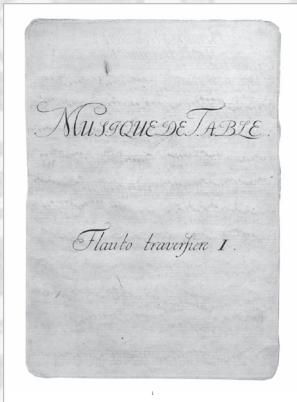 MUSIQUE DE TABLE.
Flauto traversiere I.
1